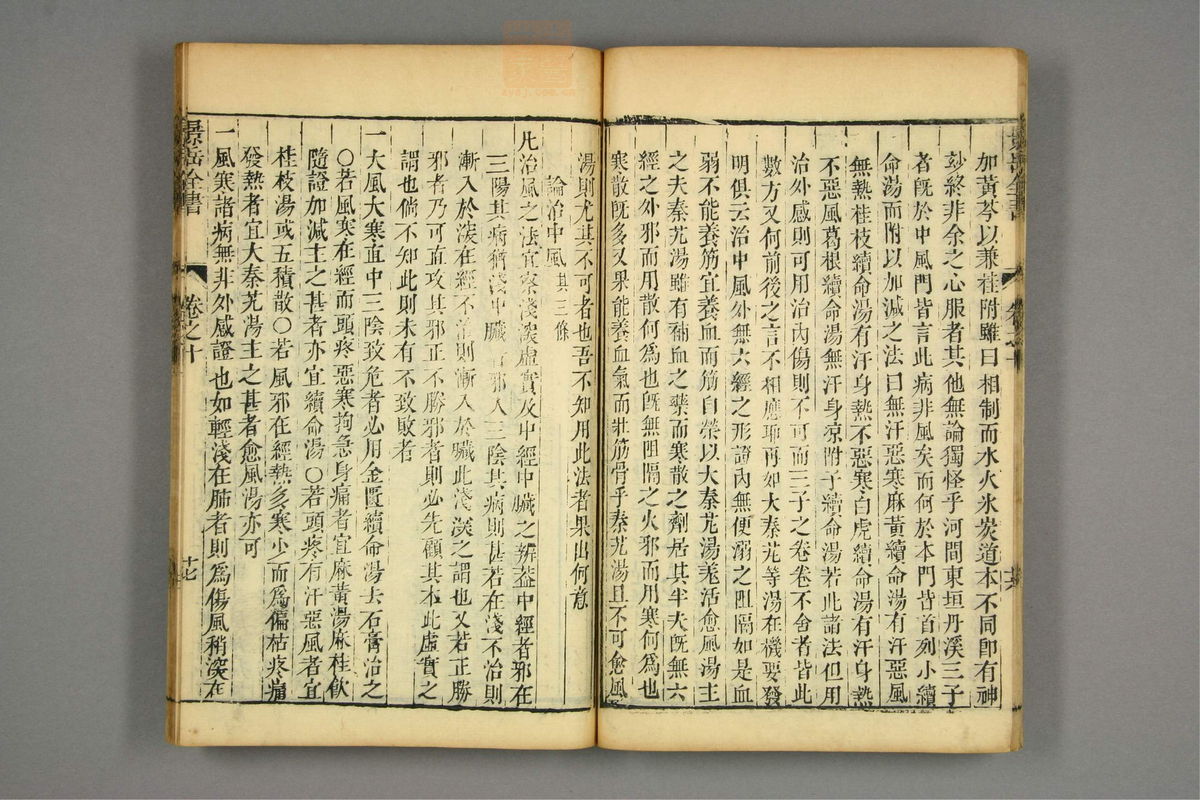 加黃芩以兼桂附雖曰相制而水火氷炭道本不同卽有神
玅終非余之心服者其他無論獨怪乎河間東垣丹溪三子
者旣於中風門皆言此病非風矣而何於本門皆首列小續
命湯而附以加減之法曰無汗惡寒麻黃續命湯有汗惡風
無熱桂枝續命湯有汗身熱不惡寒白虎續命湯有汗身熱
不惡風葛根續命湯無汗身凉附子續命湯若此諸法但用
治外感則可用治內傷則不可而三子之卷卷不舍者皆此
數方又何前後之言不相應耶再如大秦艽等湯在機要發
明俱云治中風外無六經之形證內無便溺之阻隔如是血
弱不能養筋宜養血而筋自榮以大秦艽湯羗活愈風湯主
之夫秦艽湯雖有補血之藥而寒散之劑居其半夫旣無六
經之外邪而用散何爲也旣無阻隔之火邪而用寒何爲也
寒散旣多又果能養血氣而壯筋骨乎秦艽湯且不可愈風
景岳全書 卷之十 十六
湯則尤其不可者也吾不知用此法者果出何意
論治中風 共三條
凡治風之法宜察淺深虛實及中經中臟之辨葢中經者邪在
三陽其病猶淺中臟者邪入三陰其病則甚若在淺不治則
漸入於深在經不治則漸入於臟此淺深之謂也又若正勝
邪者乃可直攻其邪正不勝邪者則必先顧其本此虛實之
謂也倘不知此則未有不致敗者
一大風大寒直中三陰致危者必用金匱續命湯去石膏治之
○若風寒在經而頭疼惡寒拘急身痛者宜麻黃湯麻桂飲
隨證加減主之甚者亦宜續命湯○若頭疼有汗惡風者宜
桂枝湯或五積散○若風邪在經熱多寒少而爲偏枯疼痛
發熱者宜大秦艽湯主之甚者愈風湯亦可
一風寒諸病無非外感證也如輕淺在肺者則爲傷風稍深在
景岳全書 卷之十 十七